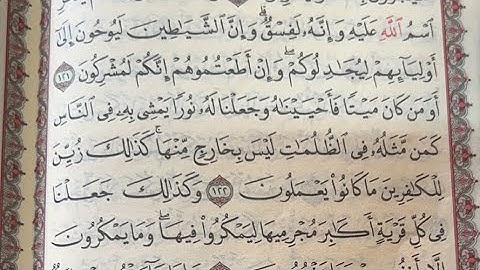 ٱسْمُ ٱللَّهِ عَلَيْهِ وَإِنَّهُۥ لَفِسْقٌ ۗ وَإِنَّ ٱلشَّيَٰطِينَ لَيُوحُونَ إِلَىٰٓ
أَوْلِيَآئِهِمْ لِيُجَٰدِلُوكُمْ ۖ وَإِنْ أَطَعْتُمُوهُمْ إِنَّكُمْ لَمُشْرِكُونَ ١٢١
أَوَمَن كَانَ مَيْتًا فَأَحْيَيْنَٰهُ وَجَعَلْنَا لَهُۥ نُورًا يَمْشِى بِهِۦ فِى ٱلنَّاسِ
كَمَن مَّثَلُهُۥ فِى ٱلظُّلُمَٰتِ لَيْسَ بِخَارِجٍ مِّنْهَا ۚ كَذَٰلِكَ زُيِّنَ
لِلْكَٰفِرِينَ مَا كَانُوا۟ يَعْمَلُونَ ١٢٢ وَكَذَٰلِكَ جَعَلْنَا
فِى كُلِّ قَرْيَةٍ أَكَٰبِرَ مُجْرِمِيهَا لِيَمْكُرُوا۟ فِيهَا ۖ وَمَا يَمْكُرُونَ